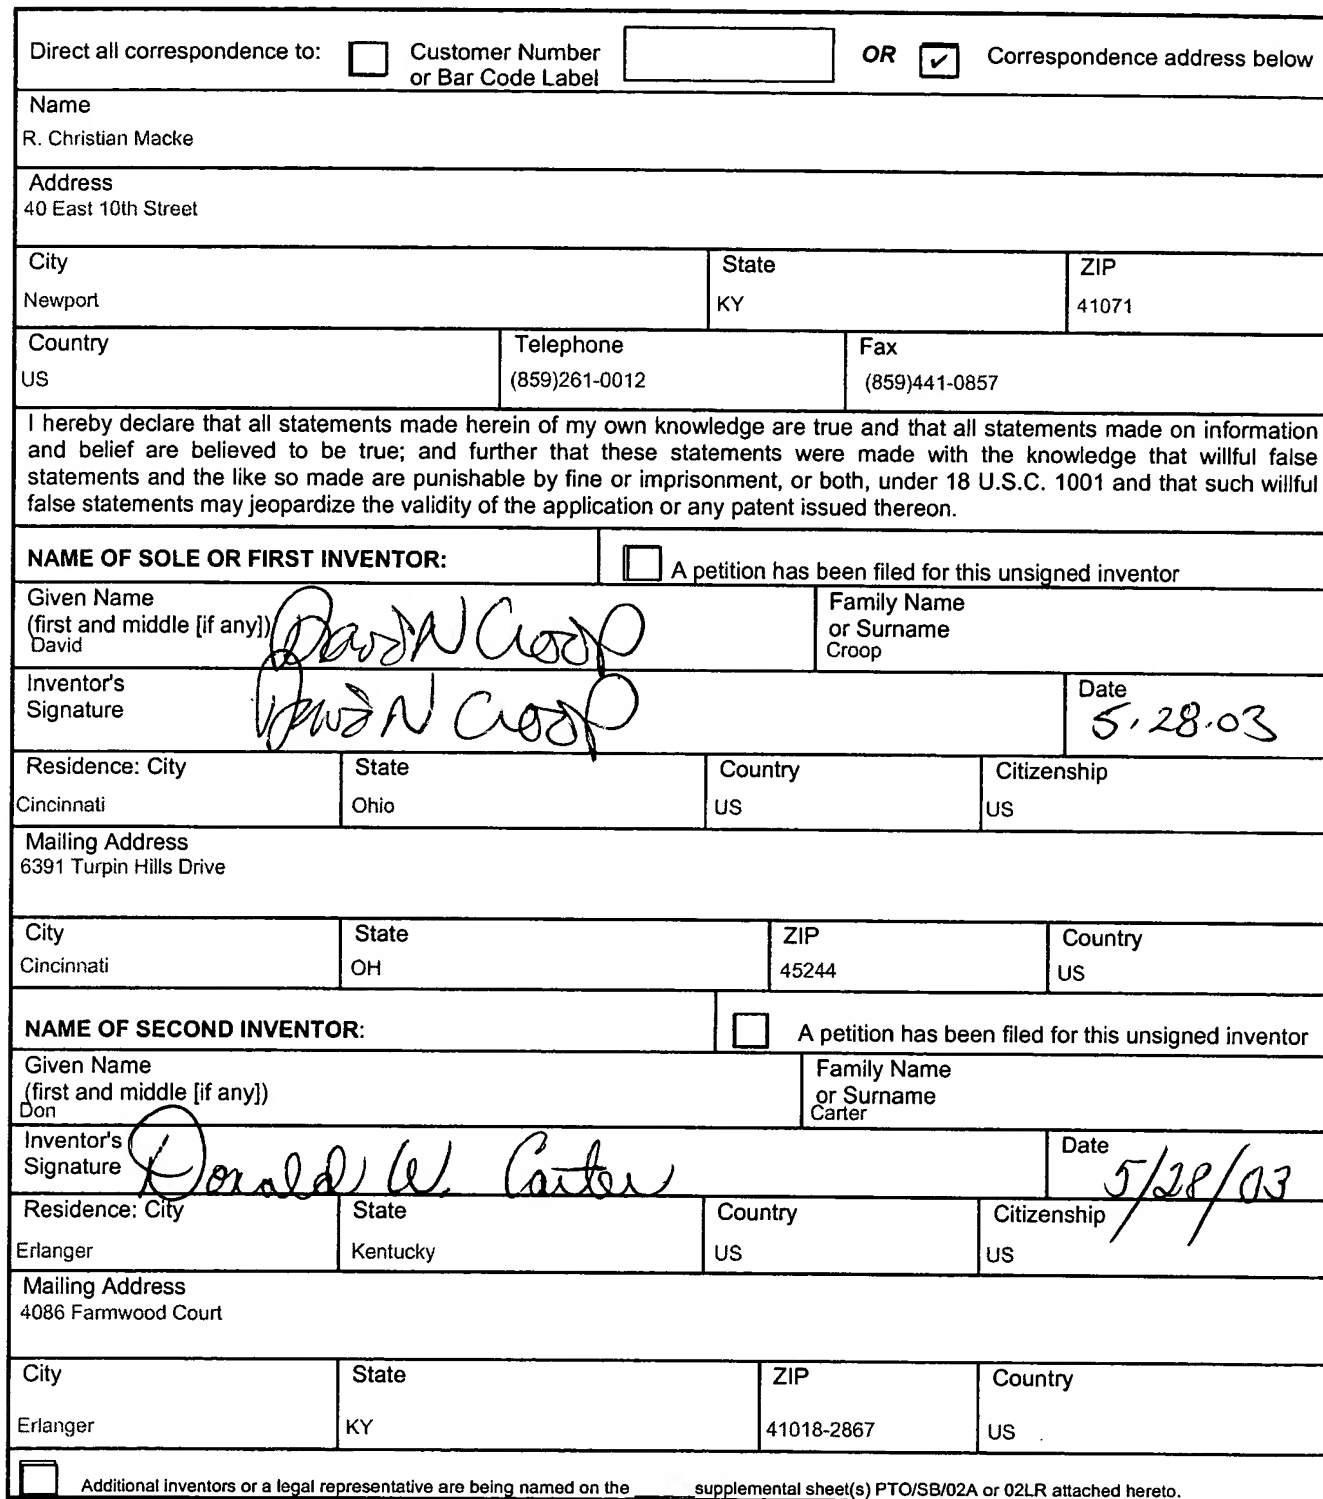 Direct all correspondence to: Customer Number or Bar Code Label OR ✓ Correspondence address below
Name
R. Christian Macke
Address
40 East 10th Street
City State ZIP
Newport KY 41071
Country Telephone Fax
US (859)261-0012 (859)441-0857
I hereby declare that all statements made herein of my own knowledge are true and that all statements made on information
and belief are believed to be true; and further that these statements were made with the knowledge that willful false
statements and the like so made are punishable by fine or imprisonment, or both, under 18 U.S.C. 1001 and that such willful
false statements may jeopardize the validity of the application or any patent issued thereon.
NAME OF SOLE OR FIRST INVENTOR: A petition has been filed for this unsigned inventor
Given Name Family Name
(first and middle [if any]) David N Croop or Surname
David Croop
Inventor's Date
Signature David N Croop 5.28.03
Residence: City State Country Citizenship
Cincinnati Ohio US US
Mailing Address
6391 Turpin Hills Drive
City State ZIP Country
Cincinnati OH 45244 US
NAME OF SECOND INVENTOR: A petition has been filed for this unsigned inventor
Given Name Family Name
(first and middle [if any]) or Surname
Don Carter
Inventor's Date
Signature Donald W. Carter 5/28/03
Residence: City State Country Citizenship
Erlanger Kentucky US US
Mailing Address
4086 Farmwood Court
City State ZIP Country
Erlanger KY 41018-2867 US
Additional inventors or a legal representative are being named on the ______supplemental sheet(s) PTO/SB/02A or 02LR attached hereto.